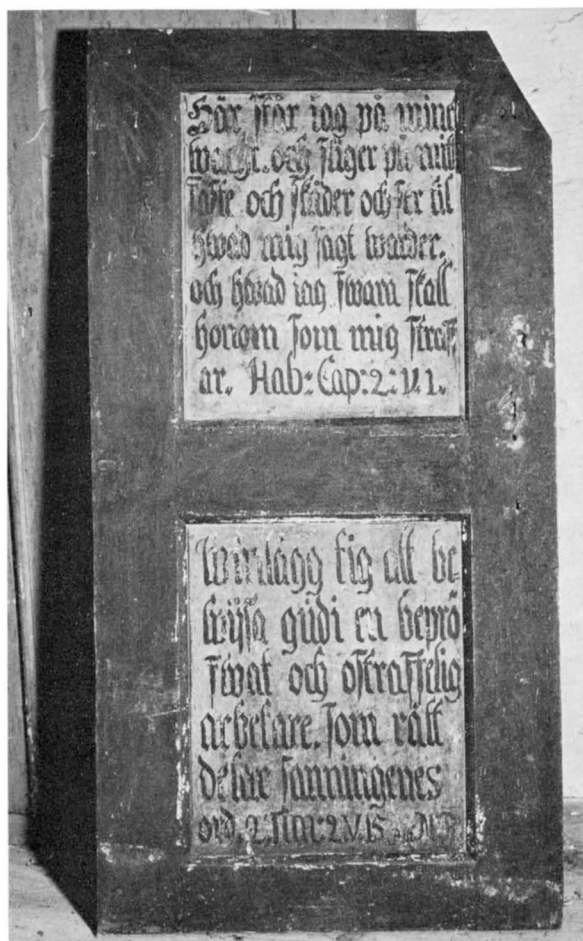 Här står iag på mine
wacht. och stiger på mitt
fäste och skåder och ser til
hwad mig sagt warder.
och hwad iag swara skall
honom som mig straff,
ar. Hab: Cap: 2: V. 1.
Winlägg tig att be
wijsa gudi en beprö
fwat och ostraffelig
arbetare. som rätt
delar sanningenes
ord. 2. Tim: 2 V. 15